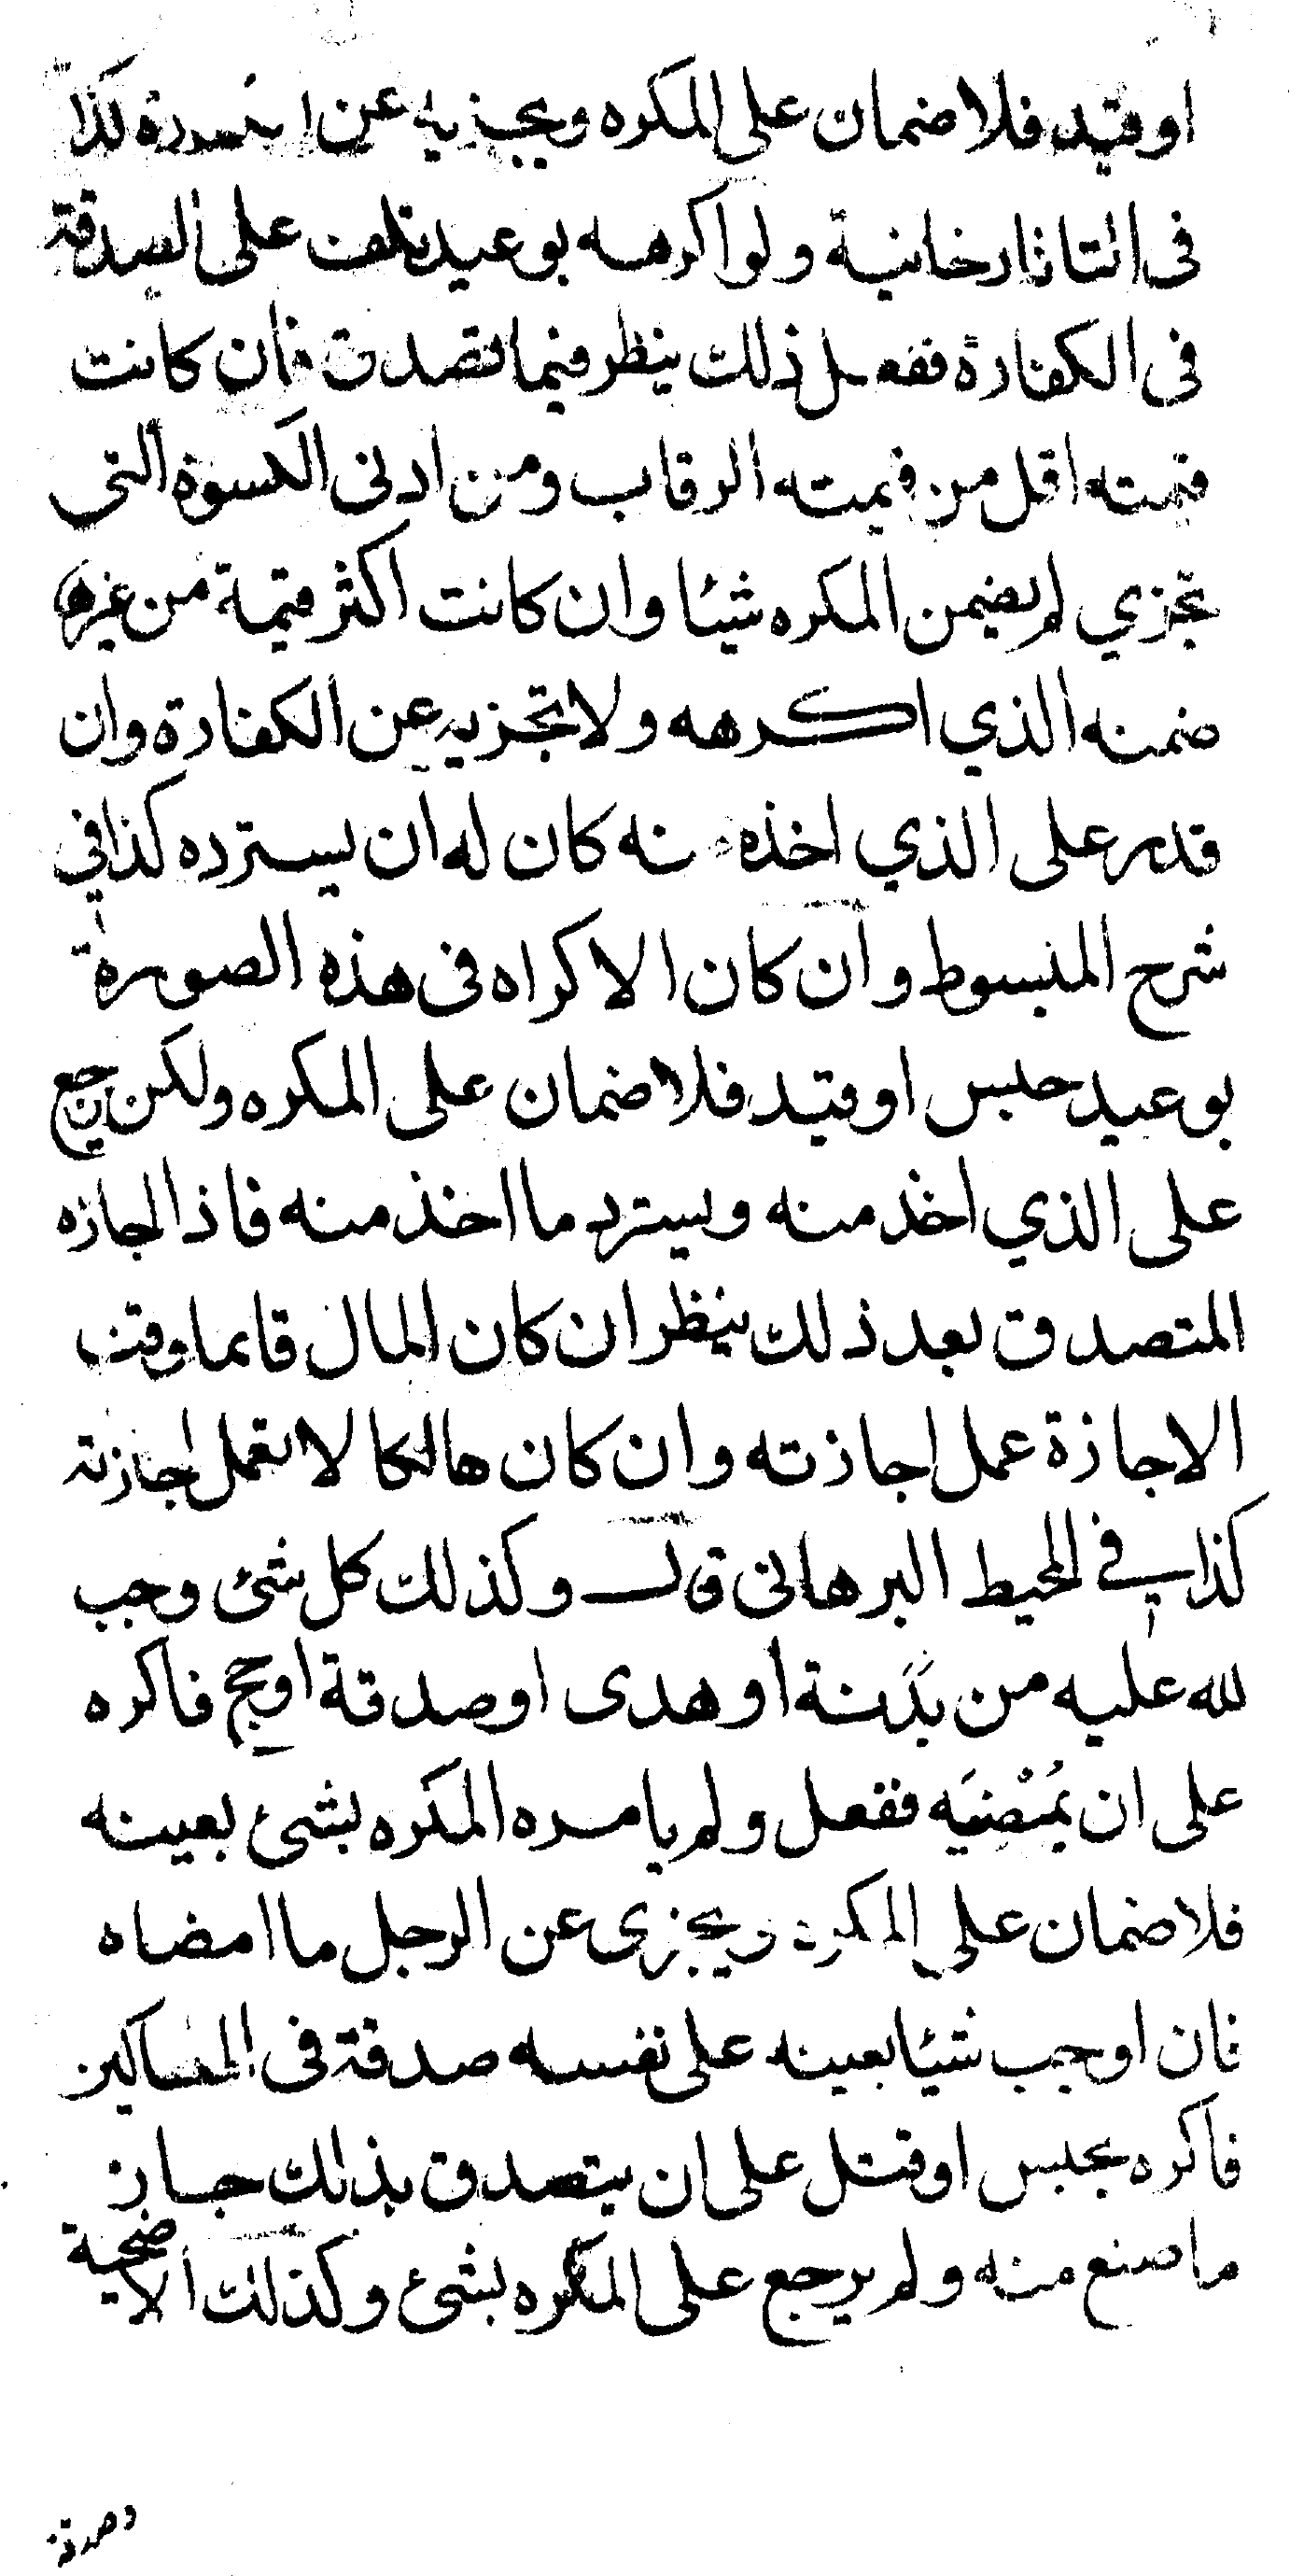 او قيد فلا ضمان على المكره ويجزيه عن الكفارة كذا
فى التاتارخانية ولو اكرهه بوعيد تلف على الصدقة
فى الكفارة ففعل ذلك ينظر فيما تصدق فان كانت
قيمته اقل من قيمته الرقاب ومن ادنى الكسوة التى
تجزي لم يضمن المكره شيئا وان كانت اكثر قيمة من غيرها
ضمنه الذي اكرهه ولا تجزيه عن الكفارة وان
قدر على الذي اخذه منه كان له ان يسترده كذا في
شرح المبسوط وان كان الاكراه فى هذه الصورة
بوعيد حبس او قيد فلا ضمان على المكره ولكن يرجع
على الذي اخذ منه ويسترد ما اخذ منه فاذا اجازه
المتصدق بعد ذلك ينظر ان كان المال قايما وقت
الاجازة عمل اجازته وان كان هالكا لا تعمل اجازته
كذا في المحيط البرهانى قال وكذلك كل شئ وجب
لله عليه من بَدَنة او هدى او صدقة او حج فاكره
على ان يُمْضيَه ففعل ولم يامره المكره بشئ بعينه
فلا ضمان على المكره ويجزى عن الرجل ما امضاه
فان اوجب شيئا بعينه على نفسه صدقة فى المساكين
فاكره بحبس او قتل على ان يتصدق بذلك جاز
ما صنع منه ولم يرجع على المكره بشئ وكذلك الاضحية